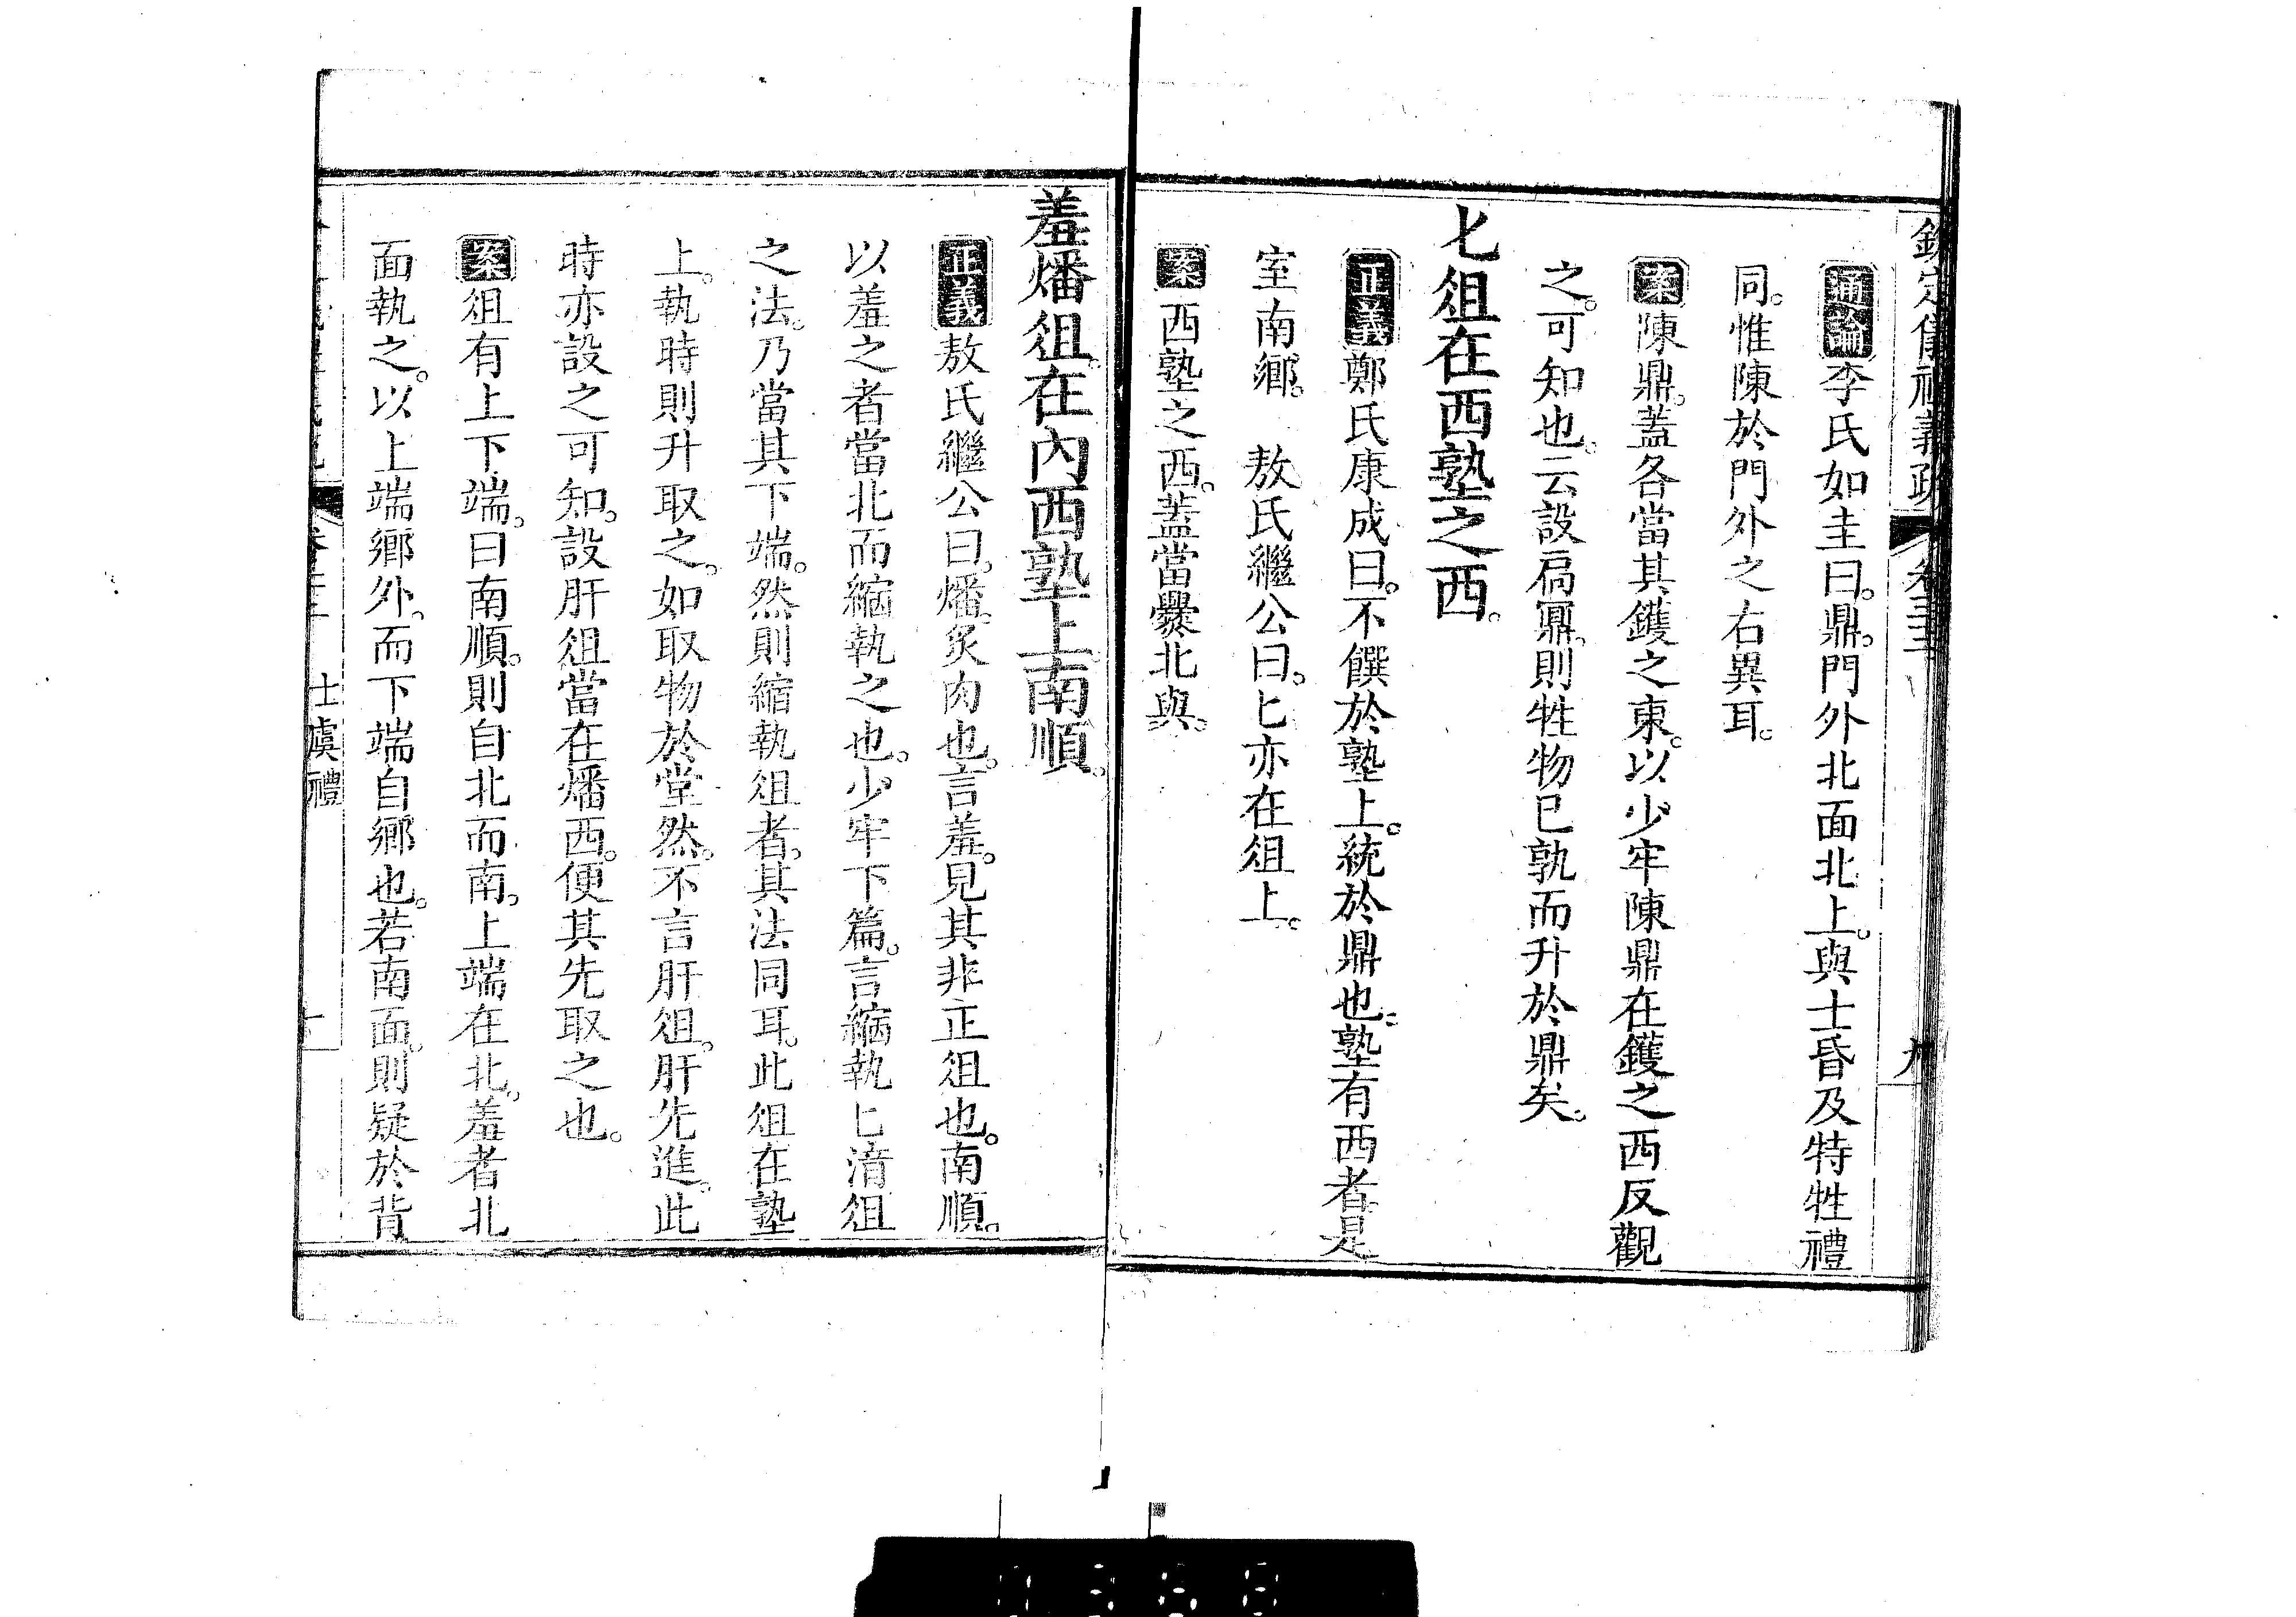 欽定儀禮義疏 卷三十三 九
通論李氏如圭曰。鼎。門外北面北上。與士昏及特牲禮
同。惟陳於門外之右異耳。
案陳鼎。蓋各當其鑊之東。以少牢陳鼎在鑊之西反觀
之。可知也。云設扃鼏。則牲物已孰而升於鼎矣。
匕俎在西塾之西。
正義鄭氏康成曰。不饌於塾上。統於鼎也。塾有西者。是
室南鄉。 敖氏繼公曰。匕亦在俎上。
案西塾之西。蓋當爨北與。
羞燔俎。在內西塾上。南順。
正義敖氏繼公曰。燔。炙肉也。言羞。見其非正俎也。南順。
以羞之者當北面縮執之也。少牢下篇。言縮執匕湇俎
之法。乃當其下端。然則縮執俎者。其法同耳。此俎在塾
上。執時則升取之。如取物於堂然。不言肝俎。肝先進。此
時亦設之可知。設肝俎當在燔西。便其先取之也。
案俎有上下端。曰南順。則自北而南。上端在北。羞者北
面執之。以上端鄉外。而下端自鄉也。若南面。則疑於背
士虞禮